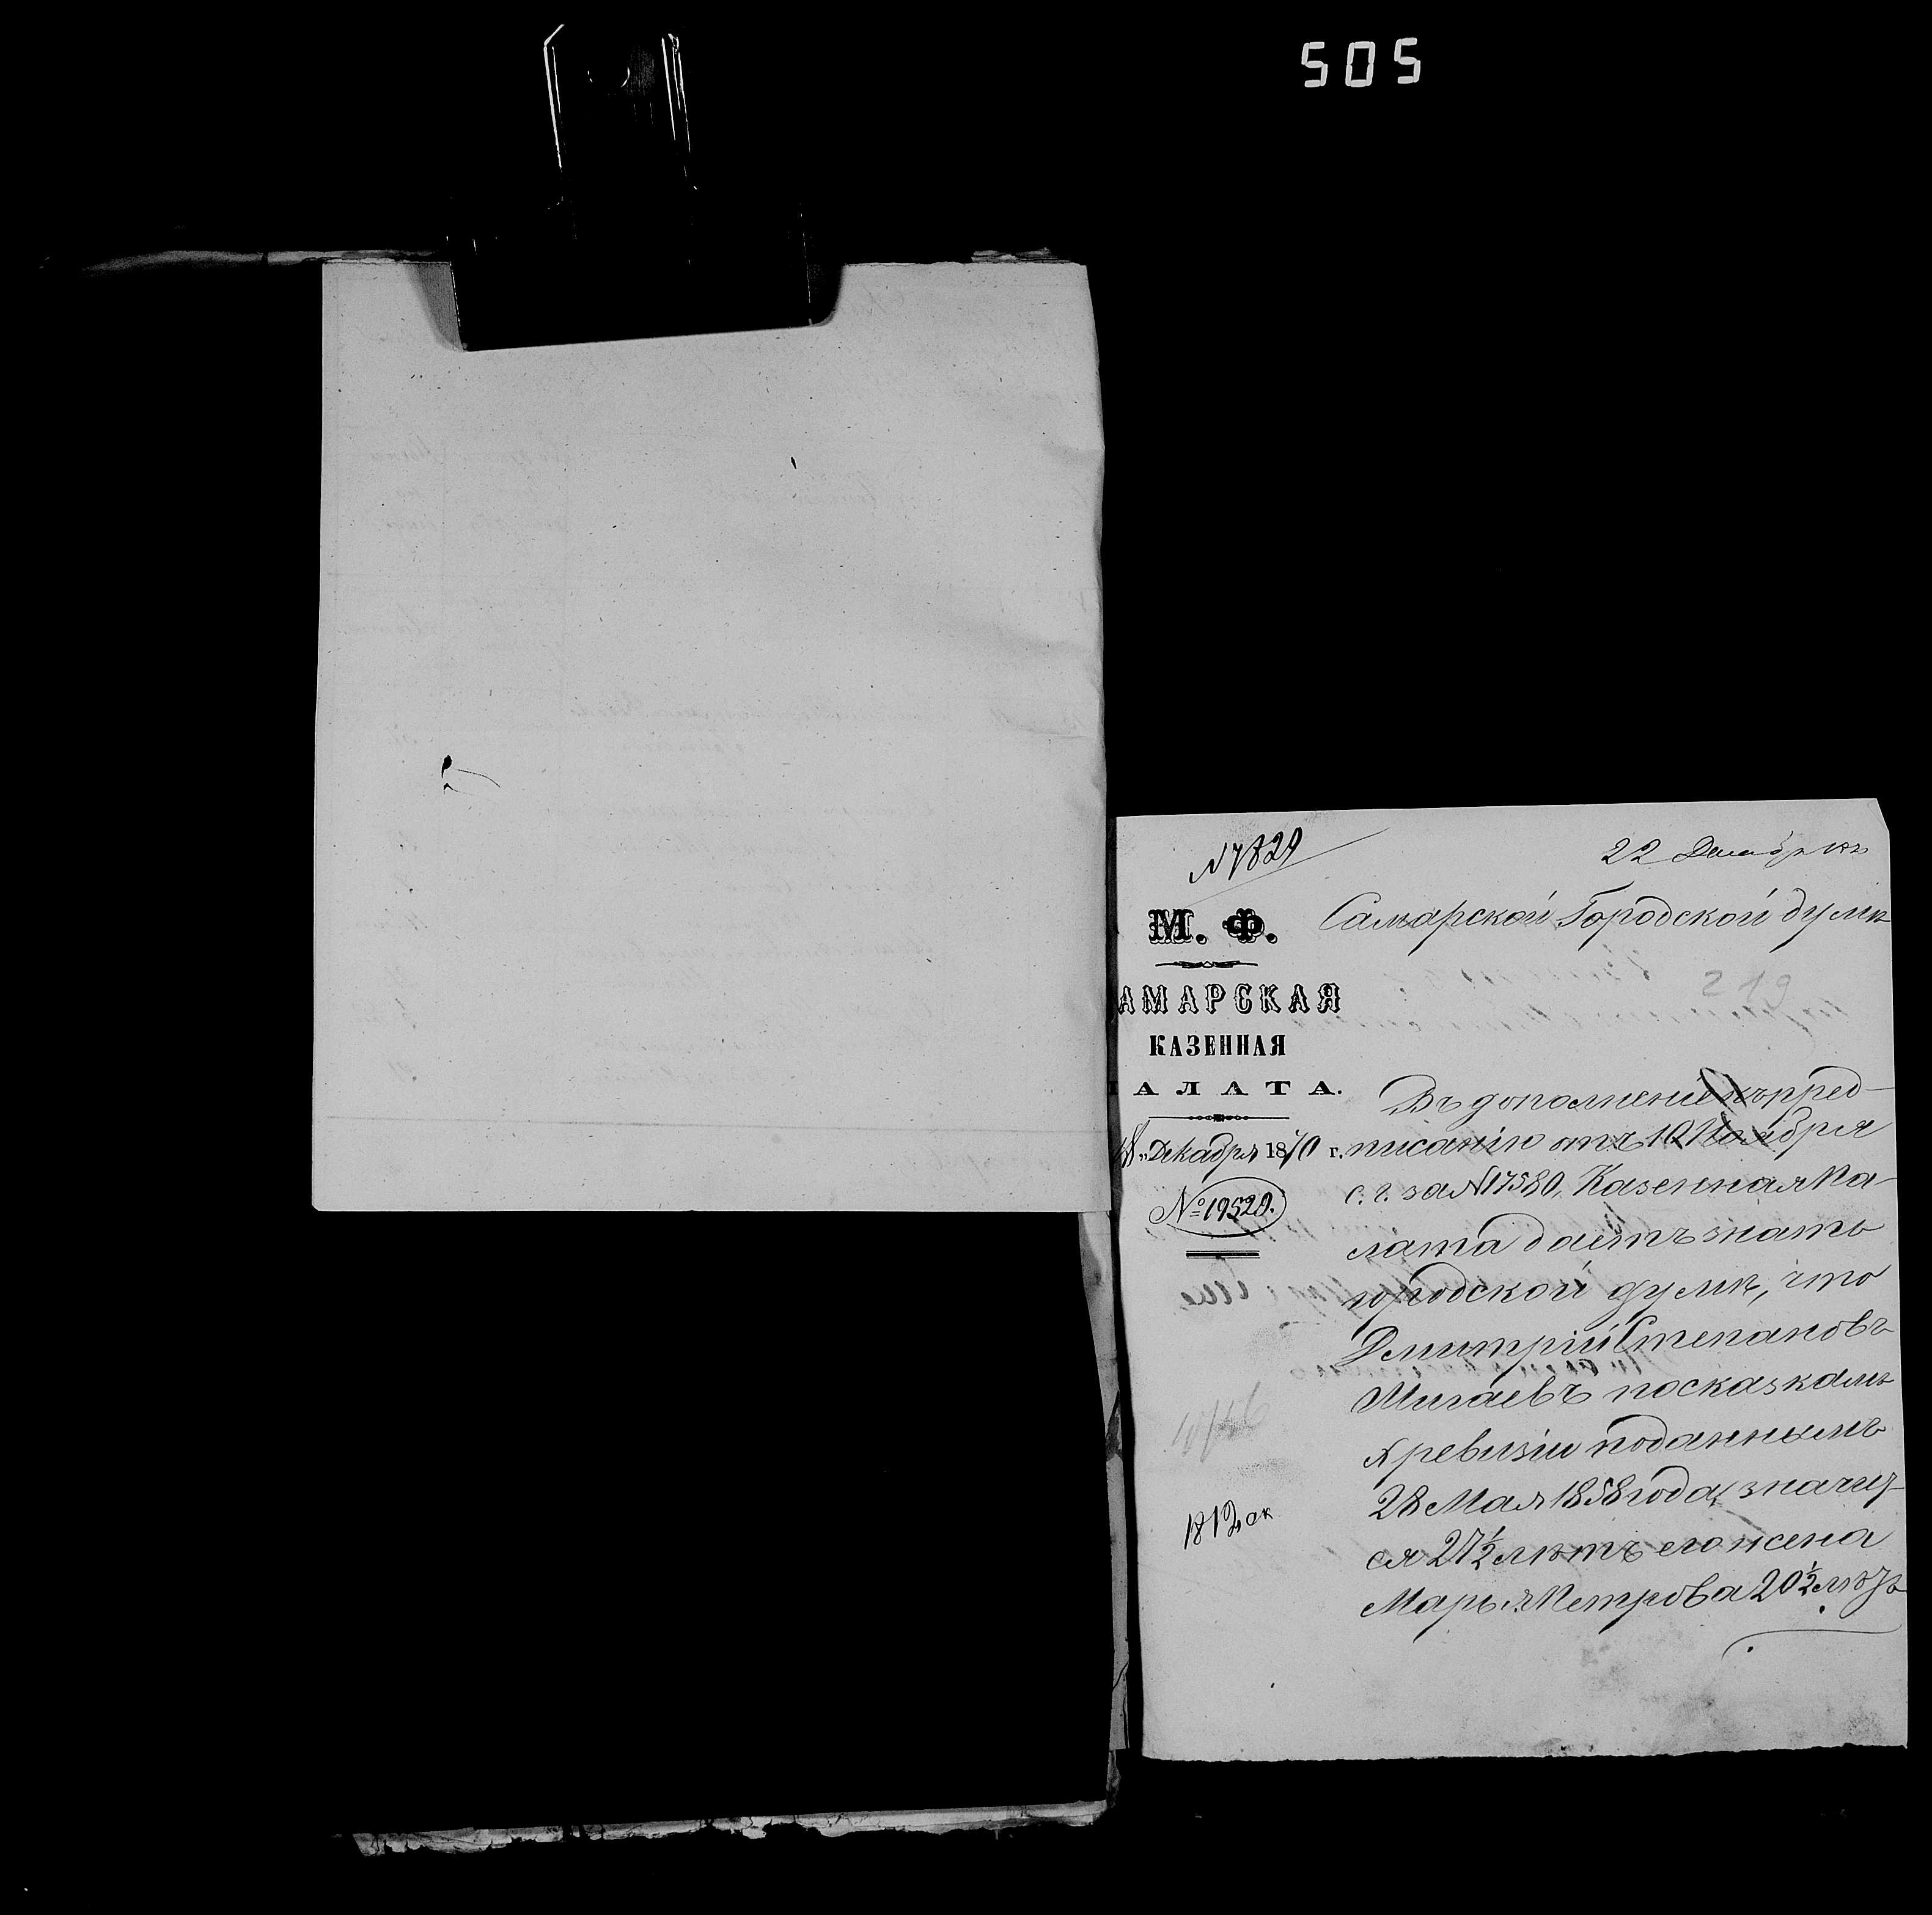 505
N 7829
22 Декабря
М. Ф.
АМАРСКАЯ
КАЗЕННАЯ
АЛАТА.
Декабря 1870 г.
№ 19520.
1812 ск
Самарской Городской думѣ
219
Въ дополненіе къ пред-
писанію отъ 10 Ноября
с. г. за N 17580, Казенная Па-
лата даетъ знать
городской думѣ, что
Дмитрій Степановъ
Мигаевъ по сказкамъ
X ревизіи поданнымъ
28 Мая 1858 года, значит-
ся 27 ½ лѣтъ его жена
Марья Петрова 20 ½ лѣтъ